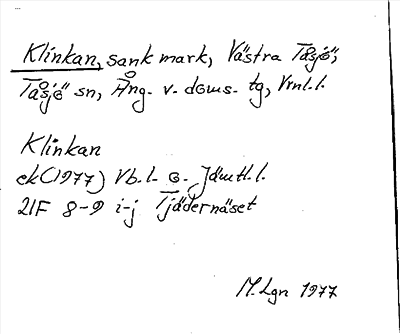 Klinkan, sank mark, Västra Tåsjö,
Tåsjö sn, Ång. v. doms. tg, Vrnl.l.
Klinkan
ek(1977) Vb.l. o. Jämtl.l.
21F 8-9 i-j Tjädernäset
M.Lgn 1977